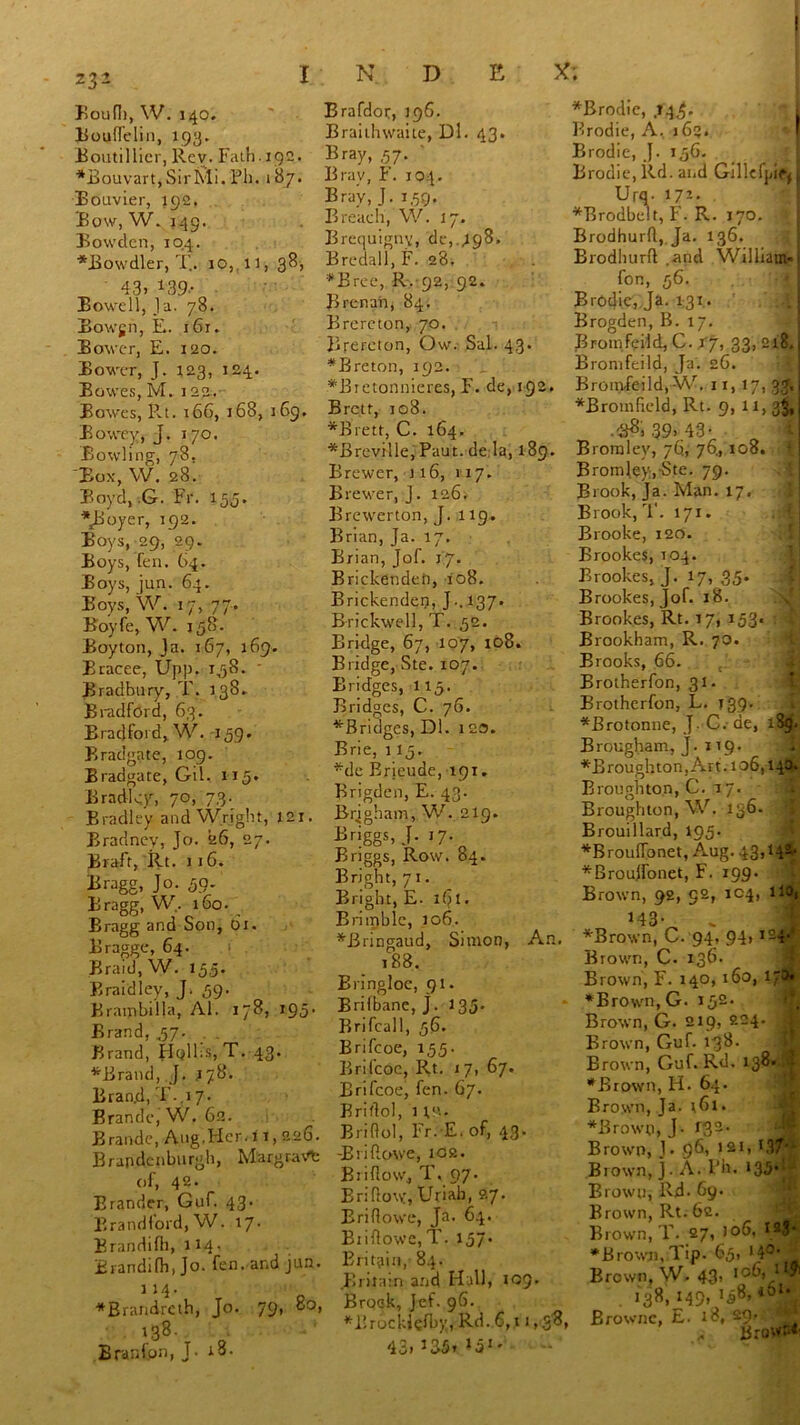 232 I N D E X;
Bouſh, W. 140.
Bouſſelin, 193.
Boutillier, Rev. Fath. 192.
*Bouvart, Sir Mi. Ph. 187.
Bouvier, 192.
Bow, W. 149.
Bowden, 104.
*Bowdler, T. 10, 11, 38,
43, 139.
Bowell, Ja. 78.
Bowen, E. 161.
Bower, E. 120.
Bower, J. 123, 124.
Bowes, M. 122.
Bowes, Rt. 166, 168, 169.
Bowey, J. 170.
Bowling, 78.
Box, W. 28.
Boyd, G. Fr. 155.
*Boyer, 192.
Boys, 29, 29.
Boys, ſen. 64.
Boys, jun. 64.
Boys, W. 17, 77.
Boyſe, W. 158.
Boyton, Ja. 167, 169.
Bracee, Upp. 158.
Bradbury, T. 138.
Bradford, 63.
Bradford, W. 159.
Bradgate, 109.
Bradgate, Gil. 115.
Bradley, 70, 73.
Bradley and Wright, 121.
Bradney, Jo. 26, 27.
Braft, Rt. 116.
Bragg, Jo. 59.
Bragg, W. 160.
Bragg and Son, 61.
Bragge, 64.
Braid, W. 155.
Braidley, J. 59.
Brambilla, Al. 178, 195.
Brand, 57.
Brand, Hollis, T. 43.
*Brand, J. 178.
Brand, T. 17.
Brande, W. 62.
Brande, Aug. Her. 11, 226.
Brandenburgh, Margrave
of, 42.
Brander, Guſ. 43.
Brandford, W. 17.
Brandiſh, 114.
Brandiſh, Jo. ſen. and jun.
114.
*Brandreth, Jo. 79, 80,
138.
Branſon, J. 18.
Braſdor, 196.
Braithwaite, Dl. 43.
Bray, 57.
Bray, F. 104.
Bray, J. 159.
Breach, W. 17.
Brequigny, de, 198.
Bredall, F. 28.
*Bree, R. 92, 92.
Brenan, 84.
Brereton, 70.
Brereton, Ow. Sal. 43.
*Breton, 192.
*Bretonnieres, F. de, 192.
Brett, 108.
*Brett, C. 164.
*Breville, Paut. de la, 189.
Brewer, 116, 117.
Brewer, J. 126.
Brewerton, J. 119.
Brian, Ja. 17.
Brian, Joſ. 17.
Brickenden, 108.
Brickenden, J. 137.
Brickwell, T. 52.
Bridge, 67, 107, 108.
Bridge, Ste. 107.
Bridges, 115.
Bridges, C. 76.
*Bridges, Dl. 120.
Brie, 115.
*de Brieude, 191.
Brigden, E. 43.
Brigham, W. 219.
Briggs, J. 17.
Briggs, Row. 84.
Bright, 71.
Bright, E. 161.
Brimble, 106.
*Bringaud, Simon, An.
188.
Bringloe, 91.
Briſbane, J. 135.
Briſcall, 56.
Briſcoe, 155.
Briſcoe, Rt. 17, 67.
Briſcoe, ſen. 67.
Briſtol,
Briſtol, Fr. E. of, 43.
Briſtowe, 102.
Briſtow, T. 97.
Briſtow, Uriah, 27.
Briſtowe, Ja. 64.
Briſtowe, T. 157.
Britain, 84.
Britain and Hall, 109.
Brock, Jeſ. 96.
*Brockleſby, Rd. 6, 11, 38,
43, 135, 151.
*Brodie, 145.
Brodie, A. 162.
Brodie, J. 156.
Brodie, Rd. and Gilleſpie,
Urq. 172.
*Brodbelt, F. R. 170.
Brodhurſt, Ja. 136.
Brodhurſt and William-
ſon, 56.
Brodie, Ja. 131.
Brogden, B. 17.
Bromfeild, C. 17, 33, 218.
Bromfeild, Ja. 26.
Bromfeild, W. 11, 17, 33.
*Bromfield, Rt. 9, 11,
38, 39, 43.
Bromley, 76, 76, 108.
Bromley, Ste. 79.
Brook, Ja. Man. 17.
Brook, T. 171.
Brooke, 120.
Brookes, 104.
Brookes, J. 17, 35.
Brookes, Joſ. 18.
Brookes, Rt. 17, 153.
Brookham, R. 70.
Brooks, 66.
Brotherſon, 31.
Brotherſon, L. 139.
*Brotonne, J. C. de, 189.
Brougham, J. 119.
*Broughton, Art. 106, 140.
Broughton, C. 17.
Broughton, W. 136.
Brouillard, 195.
*Brouſſonet, Aug. 43, 142.
*Brouſſonet, F. 199.
Brown, 92, 92, 104, 110,
143.
*Brown, C. 94, 94, 124.
Brown, C. 136.
Brown, F. 140, 160, 170.
*Brown, G. 152.
Brown, G. 219, 224.
Brown, Guſ. 138.
Brown, Guſ. Rd. 138.
*Brown, H. 64.
Brown, Ja. 161.
*Brown, J. 132.
Brown, J. 96, 121, 137.
Brown, J. A. Ph. 135.
Brown, Rd. 69.
Brown, Rt. 62.
Brown, T. 27, 106, 123.
*Brown, Tip. 65, 140.
Brown, W. 43, 106, 119,
138, 149, 158, 161.
Browne, E. 18, 29.
Browne